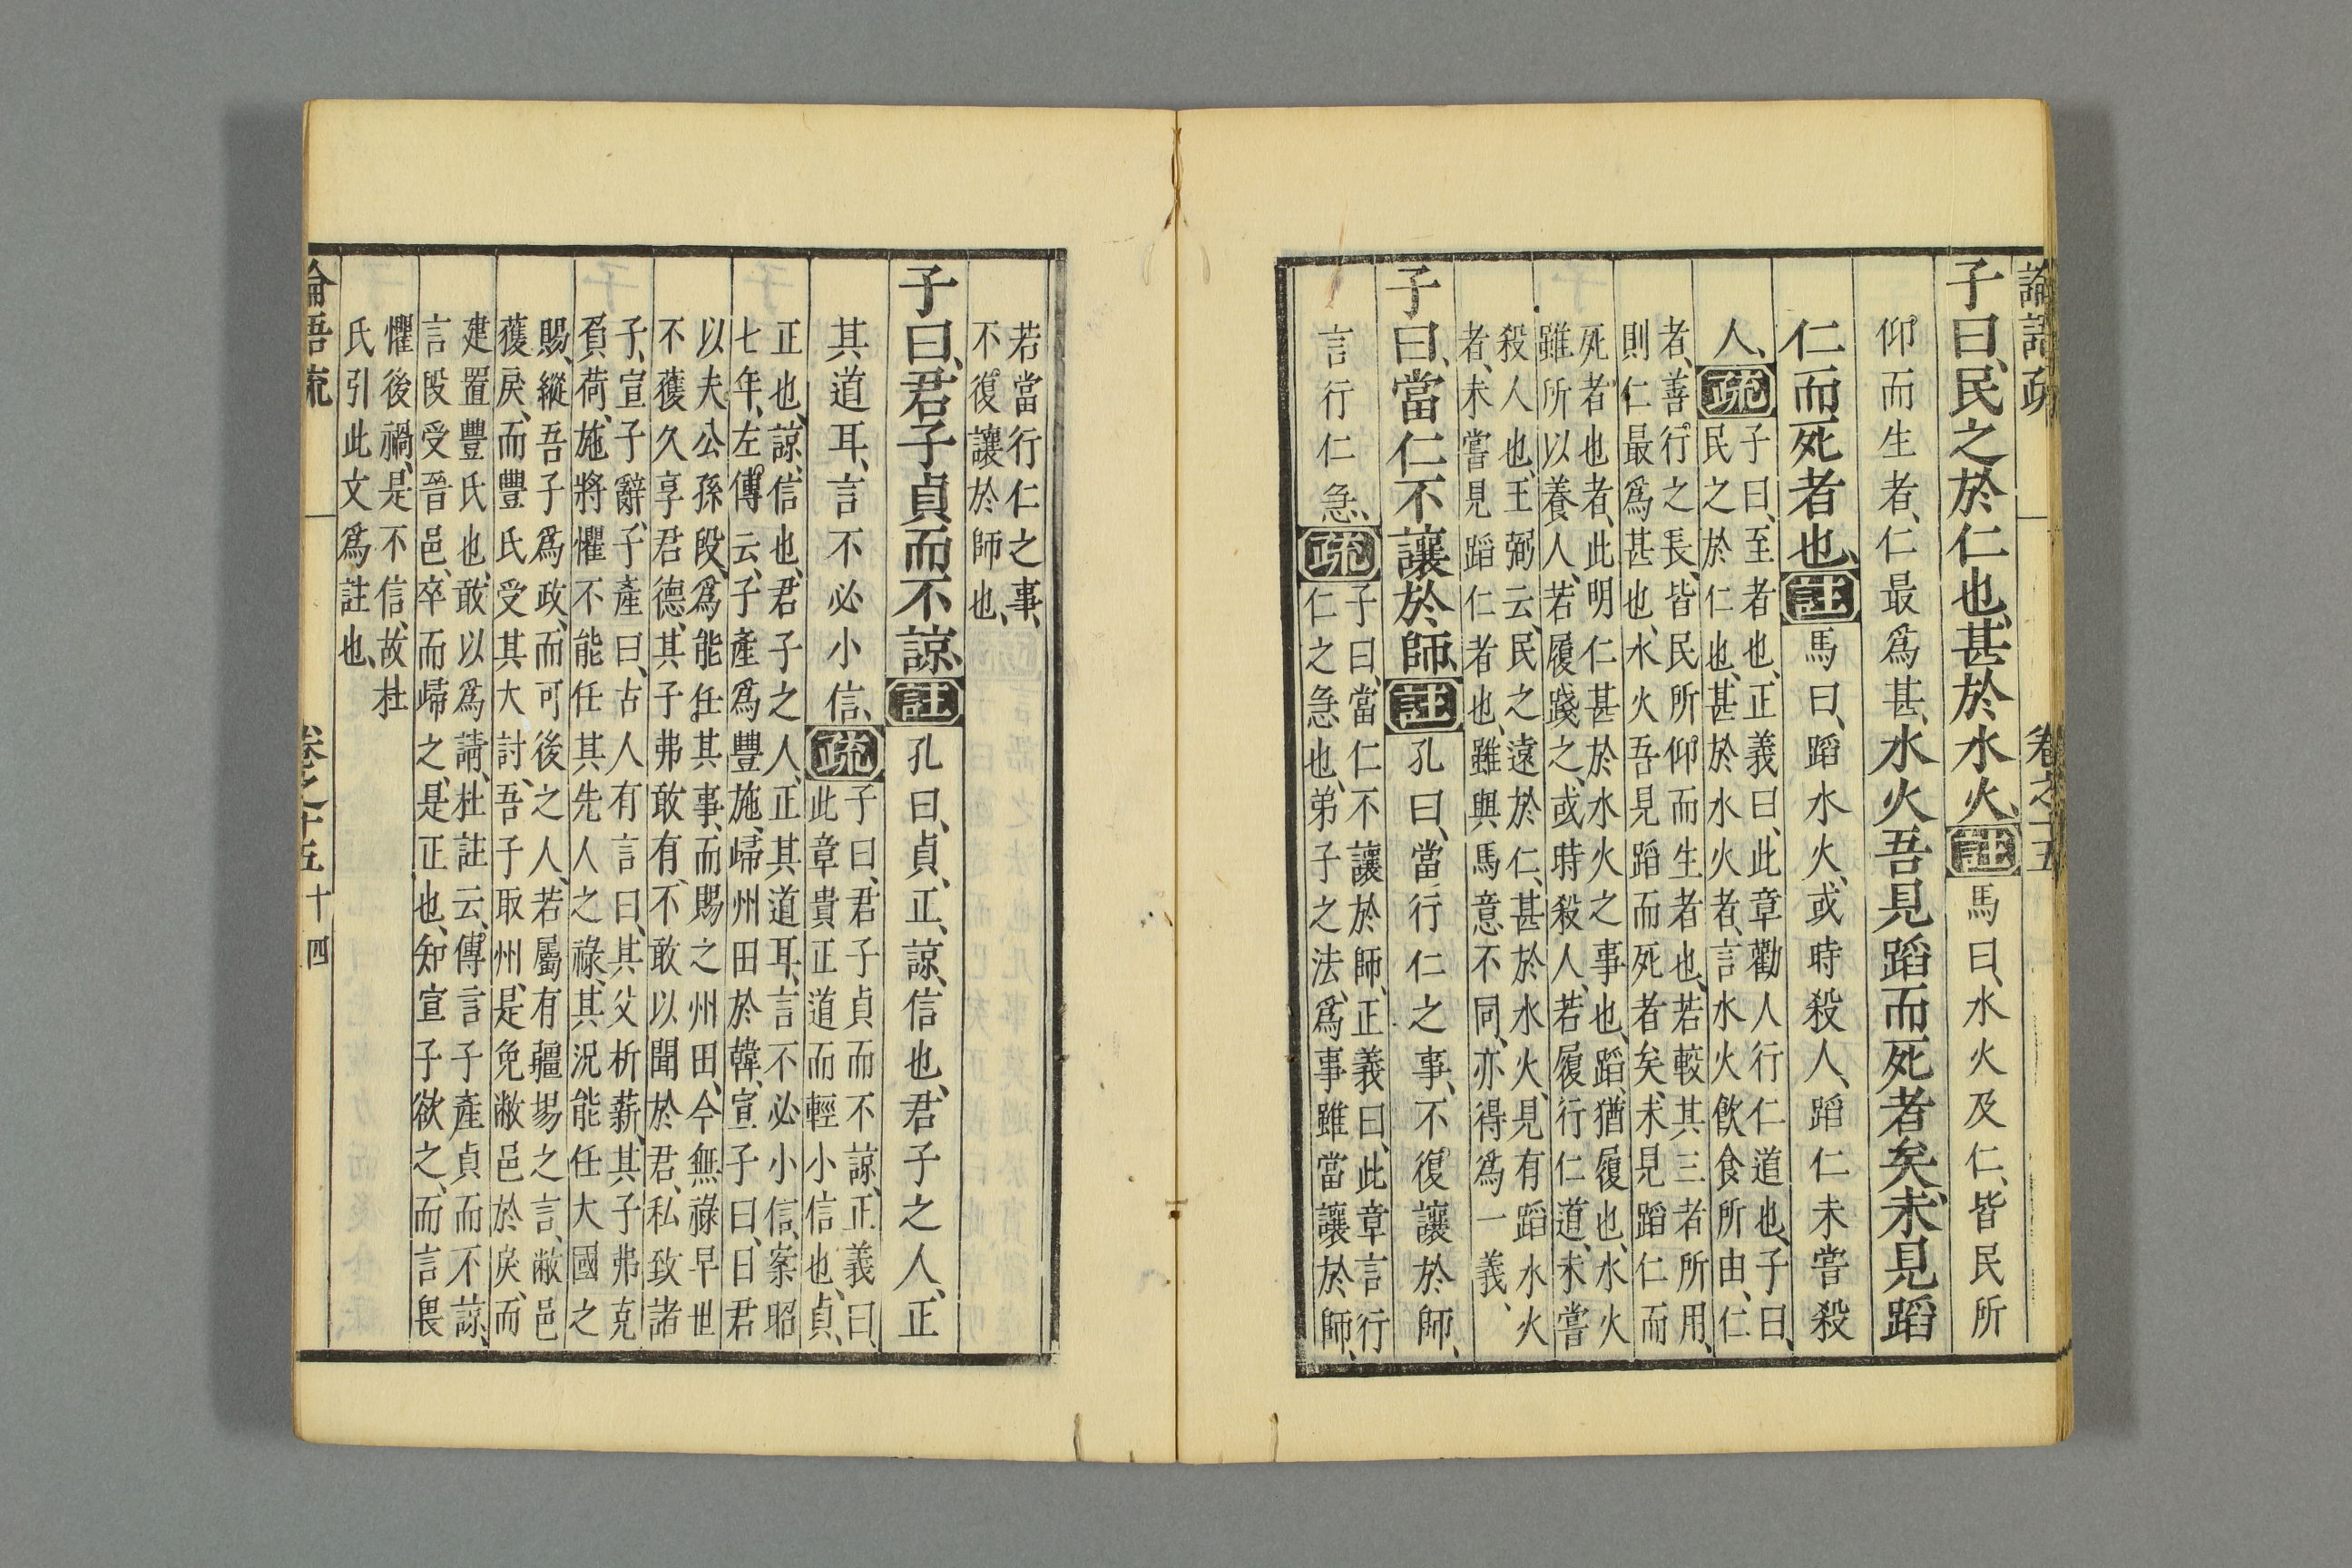 論語疏 卷之十五
子曰、民之於仁也、甚於水火、註馬曰、水火及仁、皆民所
仰而生者、仁最爲甚、水火吾見蹈而死者矣、未見蹈
仁而死者也、註馬曰、蹈水火、或時殺人、蹈仁未嘗殺
人、疏子曰、至者也、正義曰、此章勸人行仁道也、子曰、
民之於仁也、甚於水火者、言水火飲食所由、仁
者、善行之長、皆民所仰而生者也、若較其三者所用、
則仁最爲甚也、水火吾見蹈而死者矣、未見蹈仁而
死者也者、此明仁甚於水火之事也、蹈、猶履也、水火
雖所以養人、若履踐之、或時殺人、若履行仁道、未嘗
殺人也、王弼云、民之遠於仁、甚於水火、見有蹈水火
者、未嘗見蹈仁者也、雖與馬意不同、亦得爲一義、
子曰、當仁不讓於師、註孔曰、當行仁之事、不復讓於師、
言行仁急、疏子曰、當仁不讓於師、正義曰、此章言行
仁之急也、弟子之法、爲事雖當讓於師、
若當行仁之事、
不復讓於師也、
子曰、君子貞而不諒、註孔曰、貞、正、諒、信也、君子之人、正
其道耳、言不必小信、疏子曰、君子貞而不諒、正義曰、
此章貴正道而輕小信也、貞、
正也、諒、信也、君子之人、正其道耳、言不必小信、案昭
七年、左傳云、子產爲豐施、歸州田於韓宣子曰、日君
以夫公孫段、爲能任其事、而賜之州田、今無祿早世
不獲久享君德、其子弗敢有、不敢以聞於君、私致諸
子、宣子辭、子產曰、古人有言曰、其父析薪、其子弗克
負荷、施將懼不能任其先人之祿、其況能任大國之
賜、縱吾子爲政、而可後之人、若屬有疆埸之言、敝邑
獲戾、而豐氏受其大討、吾子取州、是免敝邑於戾、而
建置豐氏也、敢以爲請、杜註云、傳言子產貞而不諒、
言段受晉邑、卒而歸之、是正也、知宣子欲之、而言畏
懼後禍、是不信、故杜
氏引此文爲註也、
論語疏 卷之十五 十四